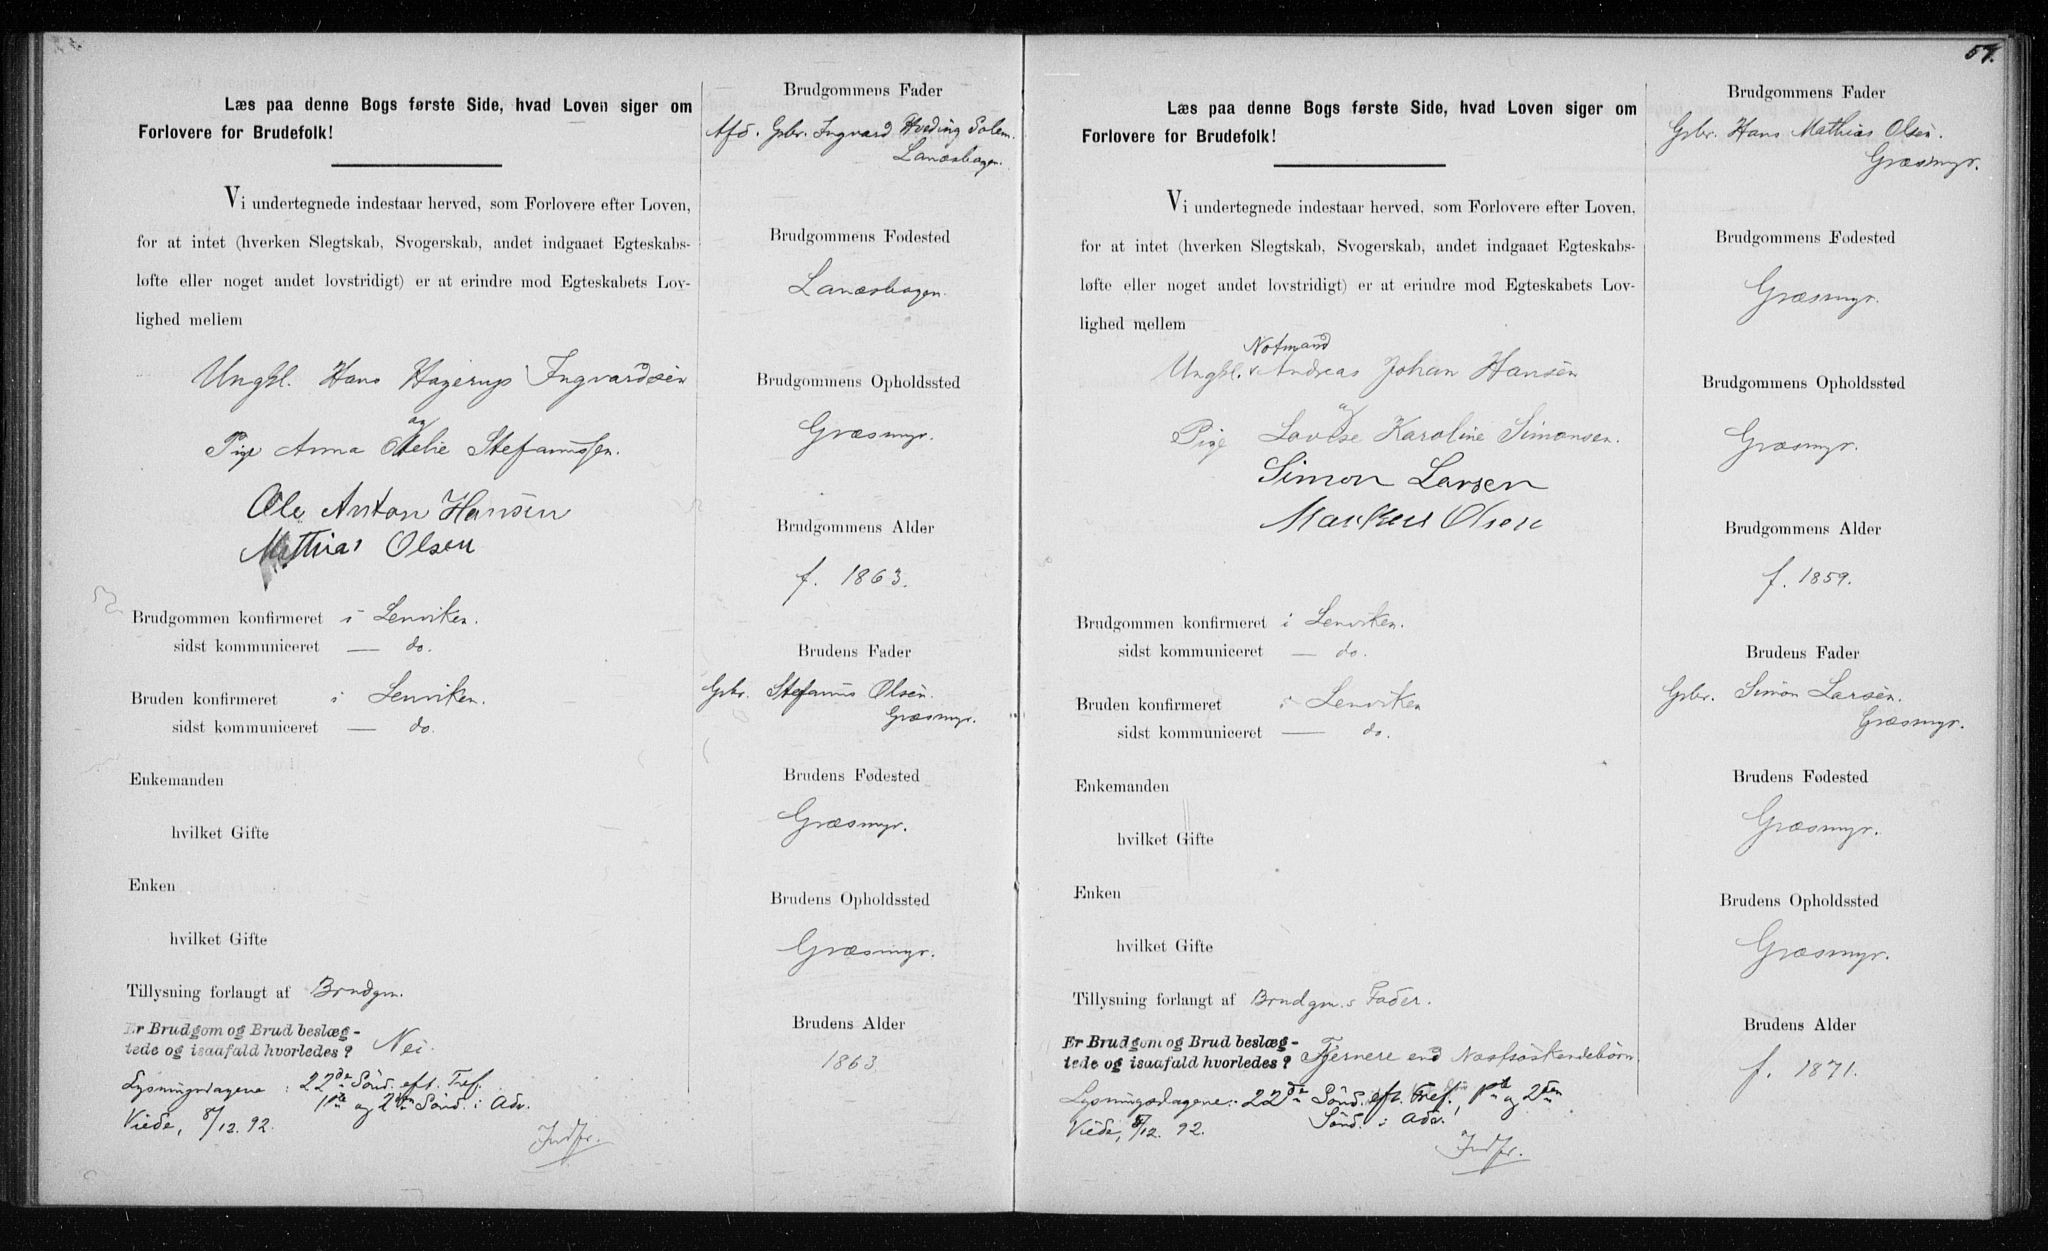 Læs paa denne Bogs første Side, hvad Loven siger om
Forlovere for Brudefolk!
Vi undertegnede indestaar herved, som Forlovere efter Loven,
for at intet (hverken Slegtskab, Svogerskab, andet indgaaet Egteskabs-
løfte eller noget andet lovstridigt) er at erindre mod Egteskabets Lov-
lighed mellem
Ungkl. Hans Hagerup Ingvardsen
og
Pige Anna Otelie Stefanussen.
Ole Anton Hansen
Mathias Olsen
Brudgommen konfirmeret i Lenviken.
sidst kommuniceret — do.
Bruden konfirmeret i Lenviken.
sidst kommuniceret — do.
Enkemanden
hvilket Gifte
Enken
hvilket Gifte
Tillysning forlangt af Brudgm.
Er Brudgom og Brud beslæg-
tede og isaafald hvorledes? Nei.
Lysningsdagene: 22de Sönd. eft. Tref.
1ste og 2den Sönd. i Adv.
Viede, 8/12. 92.
Indfr.
Brudgommens Fader
Afd. Gbr. Ingvard Hveding Solem.
Lanæshagen.
Brudgommens Fødested
Lanæshagen.
Brudgommens Opholdssted
Græsmyr.
Brudgommens Alder
f. 1863.
Brudens Fader
Gbr. Stefanus Olsen.
Græsmyr.
Brudens Fødested
Græsmyr.
Brudens Opholdssted
Græsmyr.
Brudens Alder
1863.
57.
Læs paa denne Bogs første Side, hvad Loven siger om
Forlovere for Brudefolk!
Vi undertegnede indestaar herved, som Forlovere efter Loven,
for at intet (hverken Slegtskab, Svogerskab, andet indgaaet Egteskabs-
løfte eller noget andet lovstridigt) er at erindre mod Egteskabets Lov-
lighed mellem
Notmand
Ungkl. Andreas Johan Hansen
og
Pige Lovise Karoline Simonsen.
Simon Larsen
Markus Olsen
Brudgommen konfirmeret i Lenviken.
sidst kommuniceret — do.
Bruden konfirmeret i Lenviken
sidst kommuniceret — do.
Enkemanden
hvilket Gifte
Enken
hvilket Gifte
Tillysning forlangt af Brudgm.s Fader.
Er Brudgom og Brud beslæg-
tede og isaafald hvorledes? Fjernere end Næstsöskendebörn
Lysningsdagene: 22de Sönd. eft. Tref., 1ste og 2den
Sönd. i Adv.
Viede, 8/12. 92.
Indfr.
Brudgommens Fader
Gbr. Hans Mathias Olsen.
Græsmyr.
Brudgommens Fødested
Græsmyr.
Brudgommens Opholdssted
Græsmyr.
Brudgommens Alder
f. 1859.
Brudens Fader
Gbr. Simon Larsen.
Græsmyr.
Brudens Fødested
Græsmyr.
Brudens Opholdssted
Græsmyr.
Brudens Alder
f. 1871.